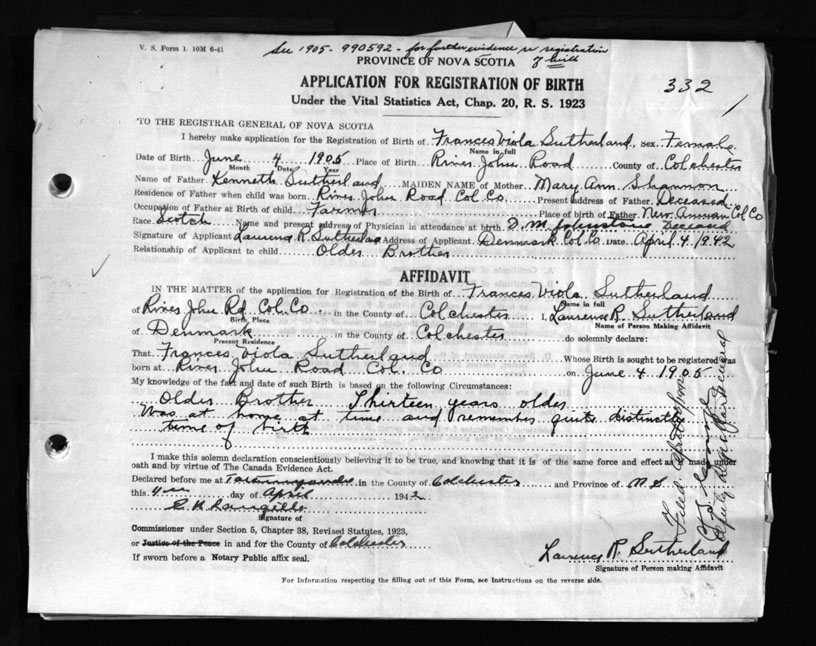 V. S. Form 1. 10M 6-41
See 1905 - 990592 - for further evidence re registration of birth
PROVINCE OF NOVA SCOTIA
APPLICATION FOR REGISTRATION OF BIRTH
332
Under the Vital Statistics Act, Chap. 20, R. S. 1923
TO THE REGISTRAR GENERAL OF NOVA SCOTIA
I hereby make application for the Registration of Birth of Frances Viola Sutherland, sex Female
Name in full
Date of Birth June 4 1905 Place of Birth River John Road County of Colchester
Month Date Year
Name of Father Kenneth Sutherland MAIDEN NAME of Mother Mary Ann Shannon
Residence of Father when child was born River John Road Col. Co Present address of Father Deceased
Occupation of Father at Birth of child Farmer Place of birth of Father New Annan Col Co
Race Scotch Name and present address of Physician in attendance at birth D. M. Johnstone Deceased
Signature of Applicant Laurence R. Sutherland Address of Applicant Denmark Col. Co. Date April 4 1942
Relationship of Applicant to child Older Brother
AFFIDAVIT
IN THE MATTER of the application for Registration of the Birth of Frances Viola Sutherland
Name in full
of River John Rd. Col. Co. in the County of Colchester I, Laurence R. Sutherland
Birth Place Name of Person Making Affidavit
of Denmark in the County of Colchester do solemnly declare:
Present Residence
That Frances Viola Sutherland Whose Birth is sought to be registered was
born at River John Road Col. Co on June 4 1905
My knowledge of the fact and date of such Birth is based on the following Circumstances:
Older Brother Thirteen years older
Was at home at time and remember quite distinctly
time of birth
I make this solemn declaration conscientiously believing it to be true, and knowing that it is of the same force and effect as if made under
oath and by virtue of The Canada Evidence Act.
Declared before me at Tatamagouche in the County of Colchester and Province of N.S.
this 4 day of April 1942
Signature of
Commissioner under Section 5, Chapter 38, Revised Statutes, 1923,
or Justice of the Peace in and for the County of Colchester
If sworn before a Notary Public affix seal.
Laurence R. Sutherland
Signature of Person making Affidavit
For Information respecting the filling out of this Form, see Instructions on the reverse side.
Deputy Registrar General